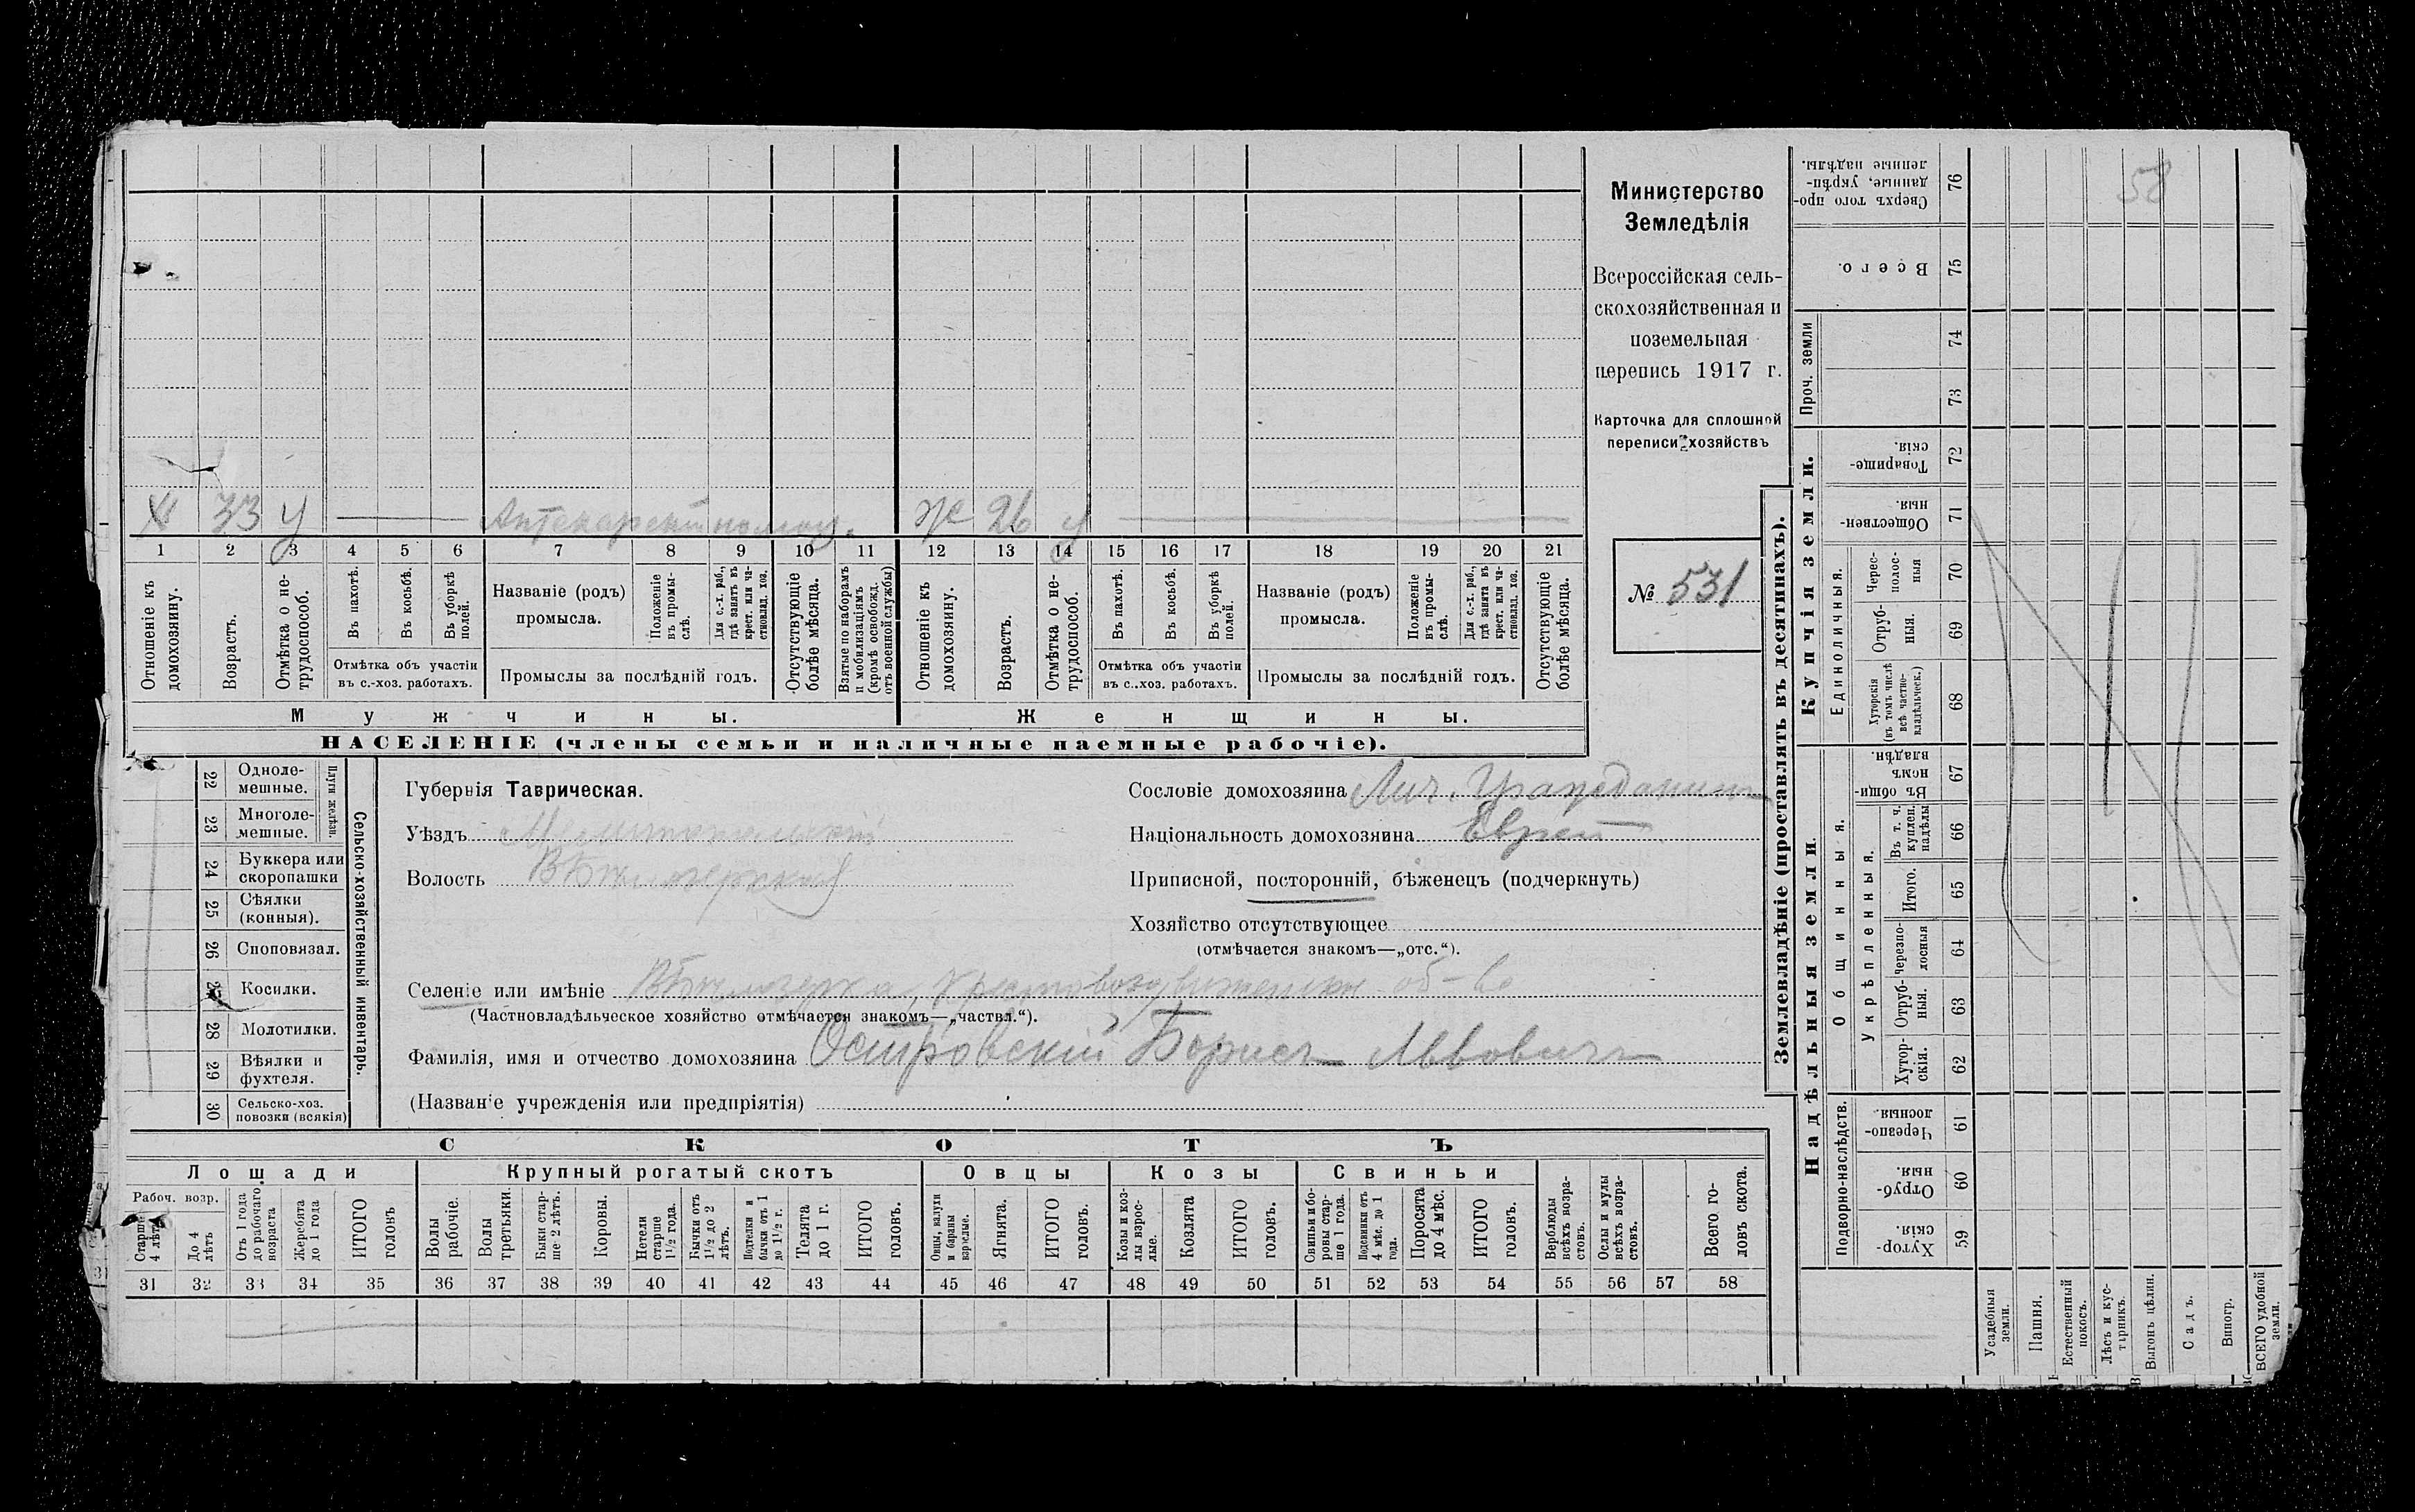 Х 33 у Аптекарскій помощ. Ж 26 у
1 2 3 4 5 6 7 8 9 10 11 12 13 14 15 16 17 18 19 20 21
Отношеніе къ домохозяину.
Возрастъ.
Отмѣтка о не-трудоспособ.
Въ пахотѣ.
Въ косьбѣ.
Въ уборкѣ полей.
Отмѣтка объ участіи
въ с.-хоз. работахъ.
Названіе (родъ)
промысла.
Положеніе въ промы-слѣ.
Для с.-х. раб., гдѣ занятъ въ крест. или ча-стновлад. хоз.
Промыслы за послѣдній годъ.
Отсутствующіе болѣе мѣсяца.
Взятые по наборамъ и мобилизаціямъ (кромѣ освобожд. отъ военной службы)
Отношеніе къ домохозяину.
Возрастъ.
Отмѣтка о не-трудоспособ.
Въ пахотѣ.
Въ косьбѣ.
Въ уборкѣ полей.
Отмѣтка объ участіи
въ с.-хоз. работахъ.
Названіе (родъ)
промысла.
Положеніе въ промы-слѣ.
Для с.-х. раб., гдѣ занята въ крест. или ча-стновлад. хоз.
Промыслы за послѣдній годъ.
Отсутствующіе болѣе мѣсяца.
Мужчины. Женщины.
НАСЕЛЕНІЕ (члены семьи и наличные наемные рабочіе).
Министерство
Земледѣлія
Всероссійская сель-
скохозяйственная и
поземельная
перепись 1917 г.
Карточка для сплошной
переписи хозяйствъ
№ 531
22 Одноле-мешные.
23 Многоле-мешные.
Плуги желѣзн.
24 Буккера или скоропашки
25 Сѣялки (конныя).
26 Споповязал.
27 Косилки.
28 Молотилки.
29 Вѣялки и фухтеля.
30 Сельско-хоз. повозки (всякія)
Сельско-хозяйственный инвентарь.
Губернія Таврическая.
Уѣздъ Мелитопольскій
Волость Бѣлозерская
Сословіе домохозяина Лич. Гражданинъ
Національность домохозяина Еврей
Приписной, посторонній, бѣженецъ (подчеркнуть)
Хозяйство отсутствующее
(отмѣчается знакомъ—„отс.“).
Селеніе или имѣніе Бѣлозерка, Крестовоздвиженск. об-во
(Частновладѣльческое хозяйство отмѣчается знакомъ—„частвл.“).
Фамилія, имя и отчество домохозяина Островскій Борисъ Львовичъ
(Названіе учрежденія или предпріятія)
СКОТЪ
Лошади Крупный рогатый скотъ Овцы Козы Свиньи
Рабоч. возр.
Старше 4 лѣтъ
До 4 лѣтъ
Отъ 1 года до рабочаго возраста
Жеребята до 1 года
ИТОГО головъ
Волы рабочіе.
Волы третьяки.
Быки стар-ше 2 лѣтъ.
Коровы.
Нетели старше 1½ года.
Бычки отъ 1½ до 2 лѣтъ.
Подтелки и бычки отъ 1 до 1½ г.
Телята до 1 г.
ИТОГО головъ.
Овцы, валухи и бараны взрослые.
Ягнята.
ИТОГО головъ.
Козы и коз-лы взрос-лые.
Козлята
ИТОГО головъ.
Свиньи и бо-ровы стар-ше 1 года.
Подсвинки отъ 4 мѣс. до 1 года.
Поросята до 4 мѣс.
ИТОГО головъ.
Верблюды всѣхъ возра-стовъ.
Ослы и мулы всѣхъ возра-стовъ.
Всего го-ловъ скота.
31 32 33 34 35 36 37 38 39 40 41 42 43 44 45 46 47 48 49 50 51 52 53 54 55 56 57 58
Землевладѣніе (проставлять въ десятинахъ).
Надѣльныя земли. Купчія земли. Проч. земли
Подворно-наслѣдств.
Общинныя.
Укрѣпленныя.
Единоличныя.
Сверхъ того про-данные, укрѣп-ленные надѣлы. 76
58
Всего. 75
74
73
Товарище-скія. 72
Обществен-ныя. 71
Черес-полос-ныя 70
Отруб-ныя. 69
Хуторскія (въ томъ числѣ всѣ частно-владѣльческ.) 68
Въ общин-номъ владѣн. 67
Въ т. ч. куплен. надѣлы 66
Итого. 65
Черезпо-лосныя 64
Отруб-ныя. 63
Хутор-скія. 62
Черезпо-лосныя. 61
Отруб-ныя. 60
Хутор-скія. 59
Усадебныя земли.
Пашня.
Естественный покосъ.
Лѣсъ и кус-тарникъ.
Выгонъ цѣлин.
Садъ.
Виногр.
ВСЕГО удобной земли.